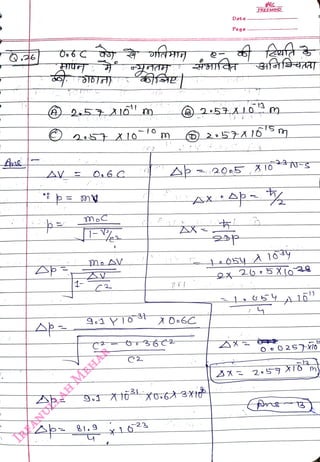 PAGE
FREEMIND
Date
Page
Q.26 0.6 C वेग से गतिमान e- की स्थिति के
मापन में न्यूनतम संभावित अनिश्चितता
की गणना कीजिए |
Ⓐ 2.57 X10^11 m Ⓑ 2.57X10^-13 m
Ⓒ 2.57 X10^-10 m Ⓓ 2.57X10^15 m
Ans -
ΔV = 0.6C
∵ p = mV
p = m₀C / √(1-V²/C²)
Δp = m₀ΔV / √(1-ΔV/C²)
Δp = 9.1 X 10^-31 X 0.6C / √((C² - 0.36C²)/C²)
Δp = 9.1 X10^-31 X0.6X3X10^8
Δp = 81.9/4 X10^-23
Δp = 20.5 X10^-23 N-S
Δx · Δp = ħ/2
Δx = ħ/2Δp
= 1.054 X 10^34 / 2X 20.5X10^-23
= 1.054/4 X 10^11
Δx = 0.0257X10^11
Δx = 2.57X10^-13 m
Ans - B
IRFANULLAH MEHAR